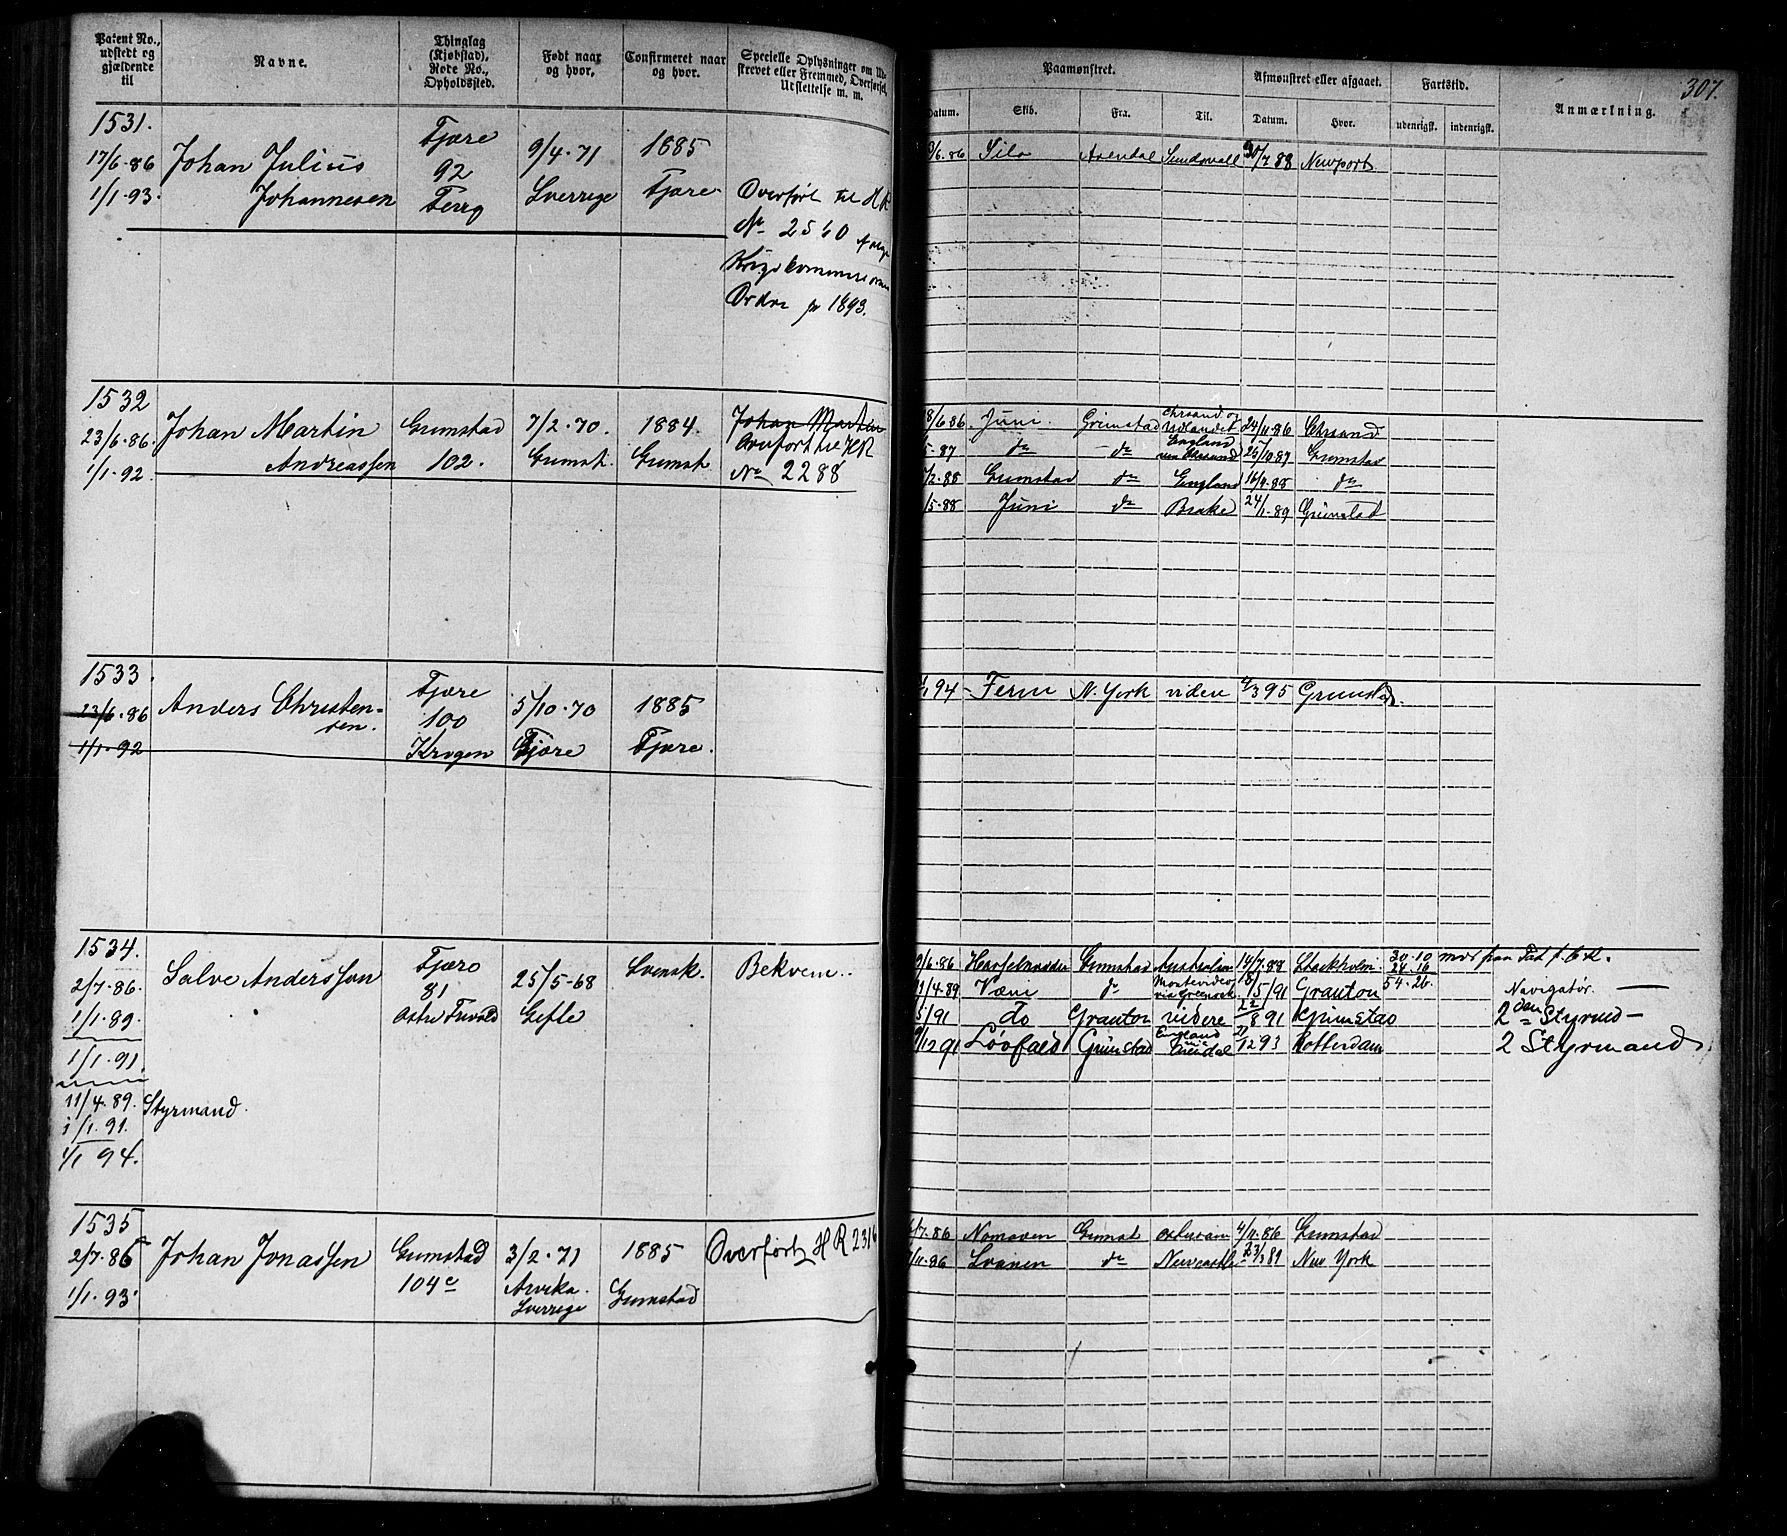 Patent No., udstedt og gjældende til
Navne.
Thinglag (Kjøbstad), Rode No., Opholdssted.
Født naar og hvor.
Confirmeret naar og hvor.
Specielle Oplysninger om Udstrevet eller Fremmed, Overførsel, Udslettelse m. m.
Paamønstret.
Datum.
Skib.
Fra.
Til.
Afmønstret eller afgaaet.
Datum.
Hvor.
Fartstid.
udenrigsk.
indenrigsk.
Anmærkning.
307.
1531.
17/6.86
1/1.93.
Johan Julius
Johannesen
Fjære
92
9/4.71
Sverrige
1885
Fjære
Overført til HR
No 2560
Krigskommissionens
Ordre 1893.
/6.86 Silo Arendal Sundsvall 30/7 88 Newport
1532
23/6.86.
1/1.92.
Johan Martin
Andreassen
Grimstad
102.
7/2.70.
Grimst.
1884.
Grimst.
Johan Martin
Overført til HR
No 2288
8/6 86 Juni Grimstad Chrsand og Udlandet 24/11.86 Chrsand
5.87 do do England via Chrsand 25/10.87 Grimstad
/2.88 Grimstad do England 16/4.88 do
/5.88 Juni do Brake 24/1.89 Grimstad
1533.
23/6.86
1/1.92
Anders Christen-
sen.
Fjære
100
Krogen
5/10.70
Fjære
1885
Fjære.
/1 94 Ferm N. York videre 4/3 95 Grimstad.
1534.
2/7.86.
1/1.89.
1/1.91.
11/4.89. Styrmand.
1/1.91.
1/1 94.
Salve Anderssøn
Fjære
81
25/5-68
Gefle
Svensk.
Bekvem..
/6.86 Hasselnødden Grimstad Australien 14/7.88 Stockholm 30.10
24.16
/4.89 Væni do Montevideo 18/5/91 Grauton 54.26. Navigatør.
5/91 do Grauton videre 22/8 91 Grimstad 2den Styrmd
/12 91 Løvfald Grimstad England 12 93 Rotterdam 2 Styrmand
1535
2/7.86
1/1.93.
Johan Jonassen
Grimstad
104c
3/2.71
Arvika.
Sverrige
1885
Grimstad
Overført HR 2316
/7.86 Nomaden Grimst 4/11.86 Grimstad
/11.86 Svanen do Newcastle 23/3 89 New York